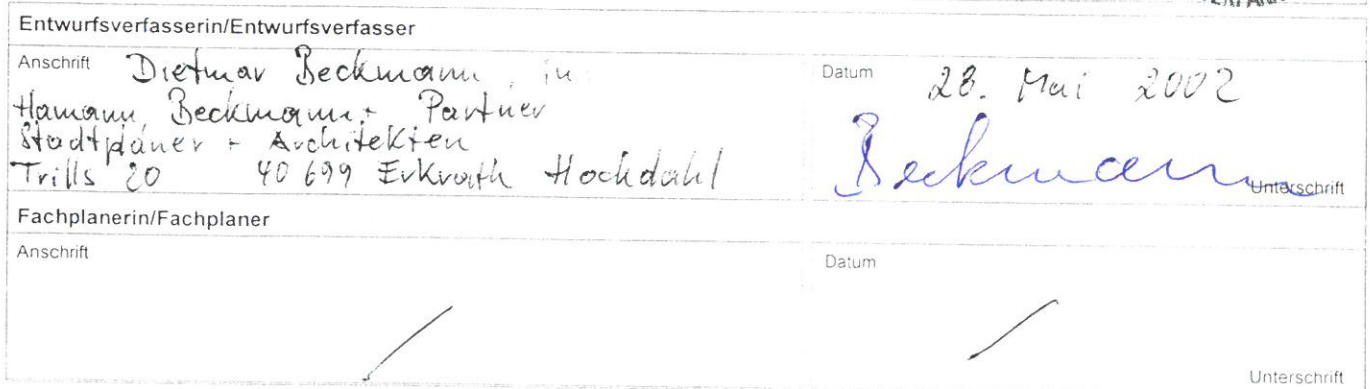 Entwurfsverfasserin/Entwurfsverfasser
Anschrift Dietmar Beckmann in
Hamann, Beckmann + Partner
Stadtplaner + Architekten
Trills 20 40 699 Erkrath Hochdahl
Datum 28. Mai 2002
Beckmann
Unterschrift
Fachplanerin/Fachplaner
Anschrift
Datum
Unterschrift